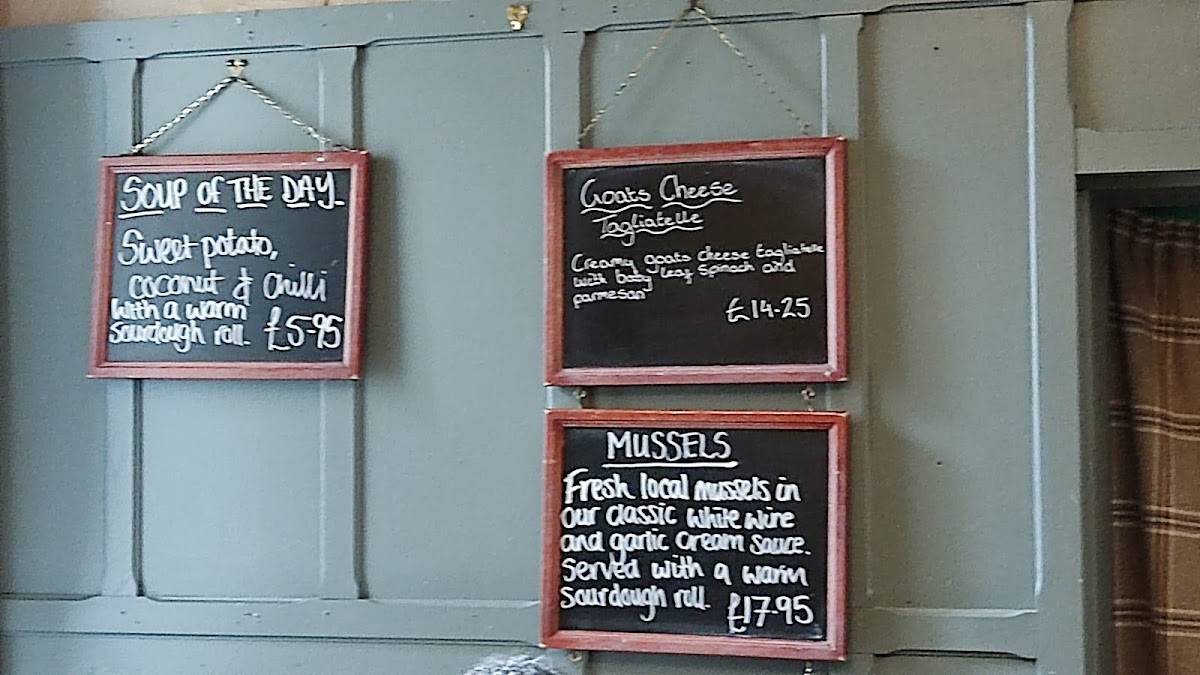 SOUP OF THE DAY
Sweet potato,
coconut & chilli
with a warm
sourdough roll. £5-95
Goats Cheese
Tagliatelle
Creamy goats cheese tagliatelle
with baby leaf spinach and
parmesan
£14-25
MUSSELS
Fresh local mussels in
our classic white wine
and garlic cream sauce.
Served with a warm
sourdough roll. £17-95